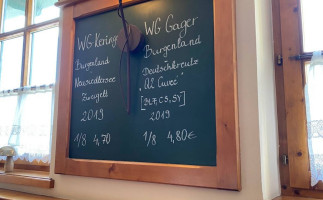 WG Keringer
Burgenland
Neusiedlersee
Zweigelt
2019
1/8 4,70
WG Gager
Burgenland
Deutschkreutz
2019
1/8 4,80€